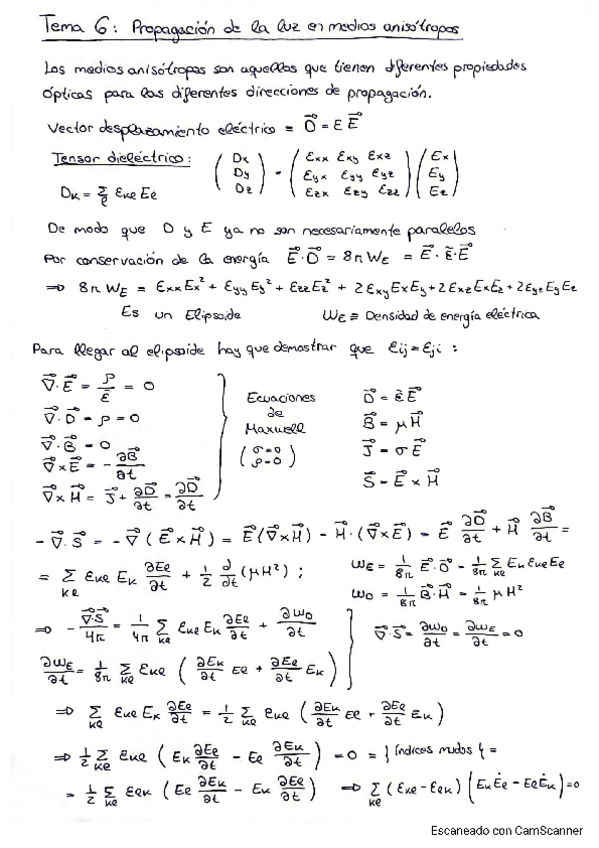 Tema 6: Propagación de la luz en medios anisótropos
Los medios anisótropos son aquellos que tienen diferentes propiedades
ópticas para las diferentes direcciones de propagación.
Vector desplazamiento eléctrico = D⃗ = ε E⃗
Tensor dieléctrico: (Dx Dy Dz) = (εxx εxy εxz εyx εyy εyz εzx εzy εzz) (Ex Ey Ez)
Dk = Σ_ℓ εkℓ Eℓ
De modo que D y E ya no son necesariamente paralelos
Por conservación de la energía E⃗·D⃗ = 8π WE = E⃗·ε̃·E⃗
⇒ 8π WE = εxx Ex² + εyy Ey² + εzz Ez² + 2εxy Ex Ey + 2εxz Ex Ez + 2εyz Ey Ez
Es un Elipsoide WE ≡ Densidad de energía eléctrica
Para llegar al elipsoide hay que demostrar que εij = εji :
∇⃗·E⃗ = ρ/ε = 0
∇⃗·D⃗ = ρ = 0
∇⃗·B⃗ = 0
∇⃗×E⃗ = - ∂B⃗/∂t
∇⃗×H⃗ = J⃗ + ∂D⃗/∂t = ∂D⃗/∂t
Ecuaciones
de
Maxwell
(σ=0 ρ=0)
D⃗ = ε̃ E⃗
B⃗ = μ H⃗
J⃗ = σ E⃗
S⃗ = E⃗ × H⃗
-∇⃗·S⃗ = -∇⃗(E⃗×H⃗) = E⃗(∇⃗×H⃗) - H⃗·(∇⃗×E⃗) = E⃗ ∂D⃗/∂t + H⃗ ∂B⃗/∂t =
= Σ_kℓ εkℓ Ek ∂Eℓ/∂t + 1/2 ∂/∂t (μH²) ; WE = 1/8π E⃗·D⃗ = 1/8π Σ_kℓ Ek εkℓ Eℓ
W0 = 1/8π B⃗·H⃗ = 1/8π μH²
⇒ - ∇⃗S⃗/4π = 1/4π Σ_kℓ εkℓ Ek ∂Eℓ/∂t + ∂W0/∂t
∇⃗·S⃗ = ∂W0/∂t = ∂WE/∂t = 0
∂WE/∂t = 1/8π Σ_kℓ εkℓ (∂Ek/∂t Eℓ + ∂Eℓ/∂t Ek)
⇒ Σ_kℓ εkℓ Ek ∂Eℓ/∂t = 1/2 Σ_kℓ εkℓ (∂Ek/∂t Eℓ + ∂Eℓ/∂t Ek)
⇒ 1/2 Σ_kℓ εkℓ (Ek ∂Eℓ/∂t - Eℓ ∂Ek/∂t) = 0 = } índices mudos { =
= 1/2 Σ_kℓ εℓk (Eℓ ∂Ek/∂t - Ek ∂Eℓ/∂t) ⇒ Σ_kℓ (εkℓ - εℓk) (Ek Ėℓ - Eℓ Ėk) = 0
Escaneado con CamScanner